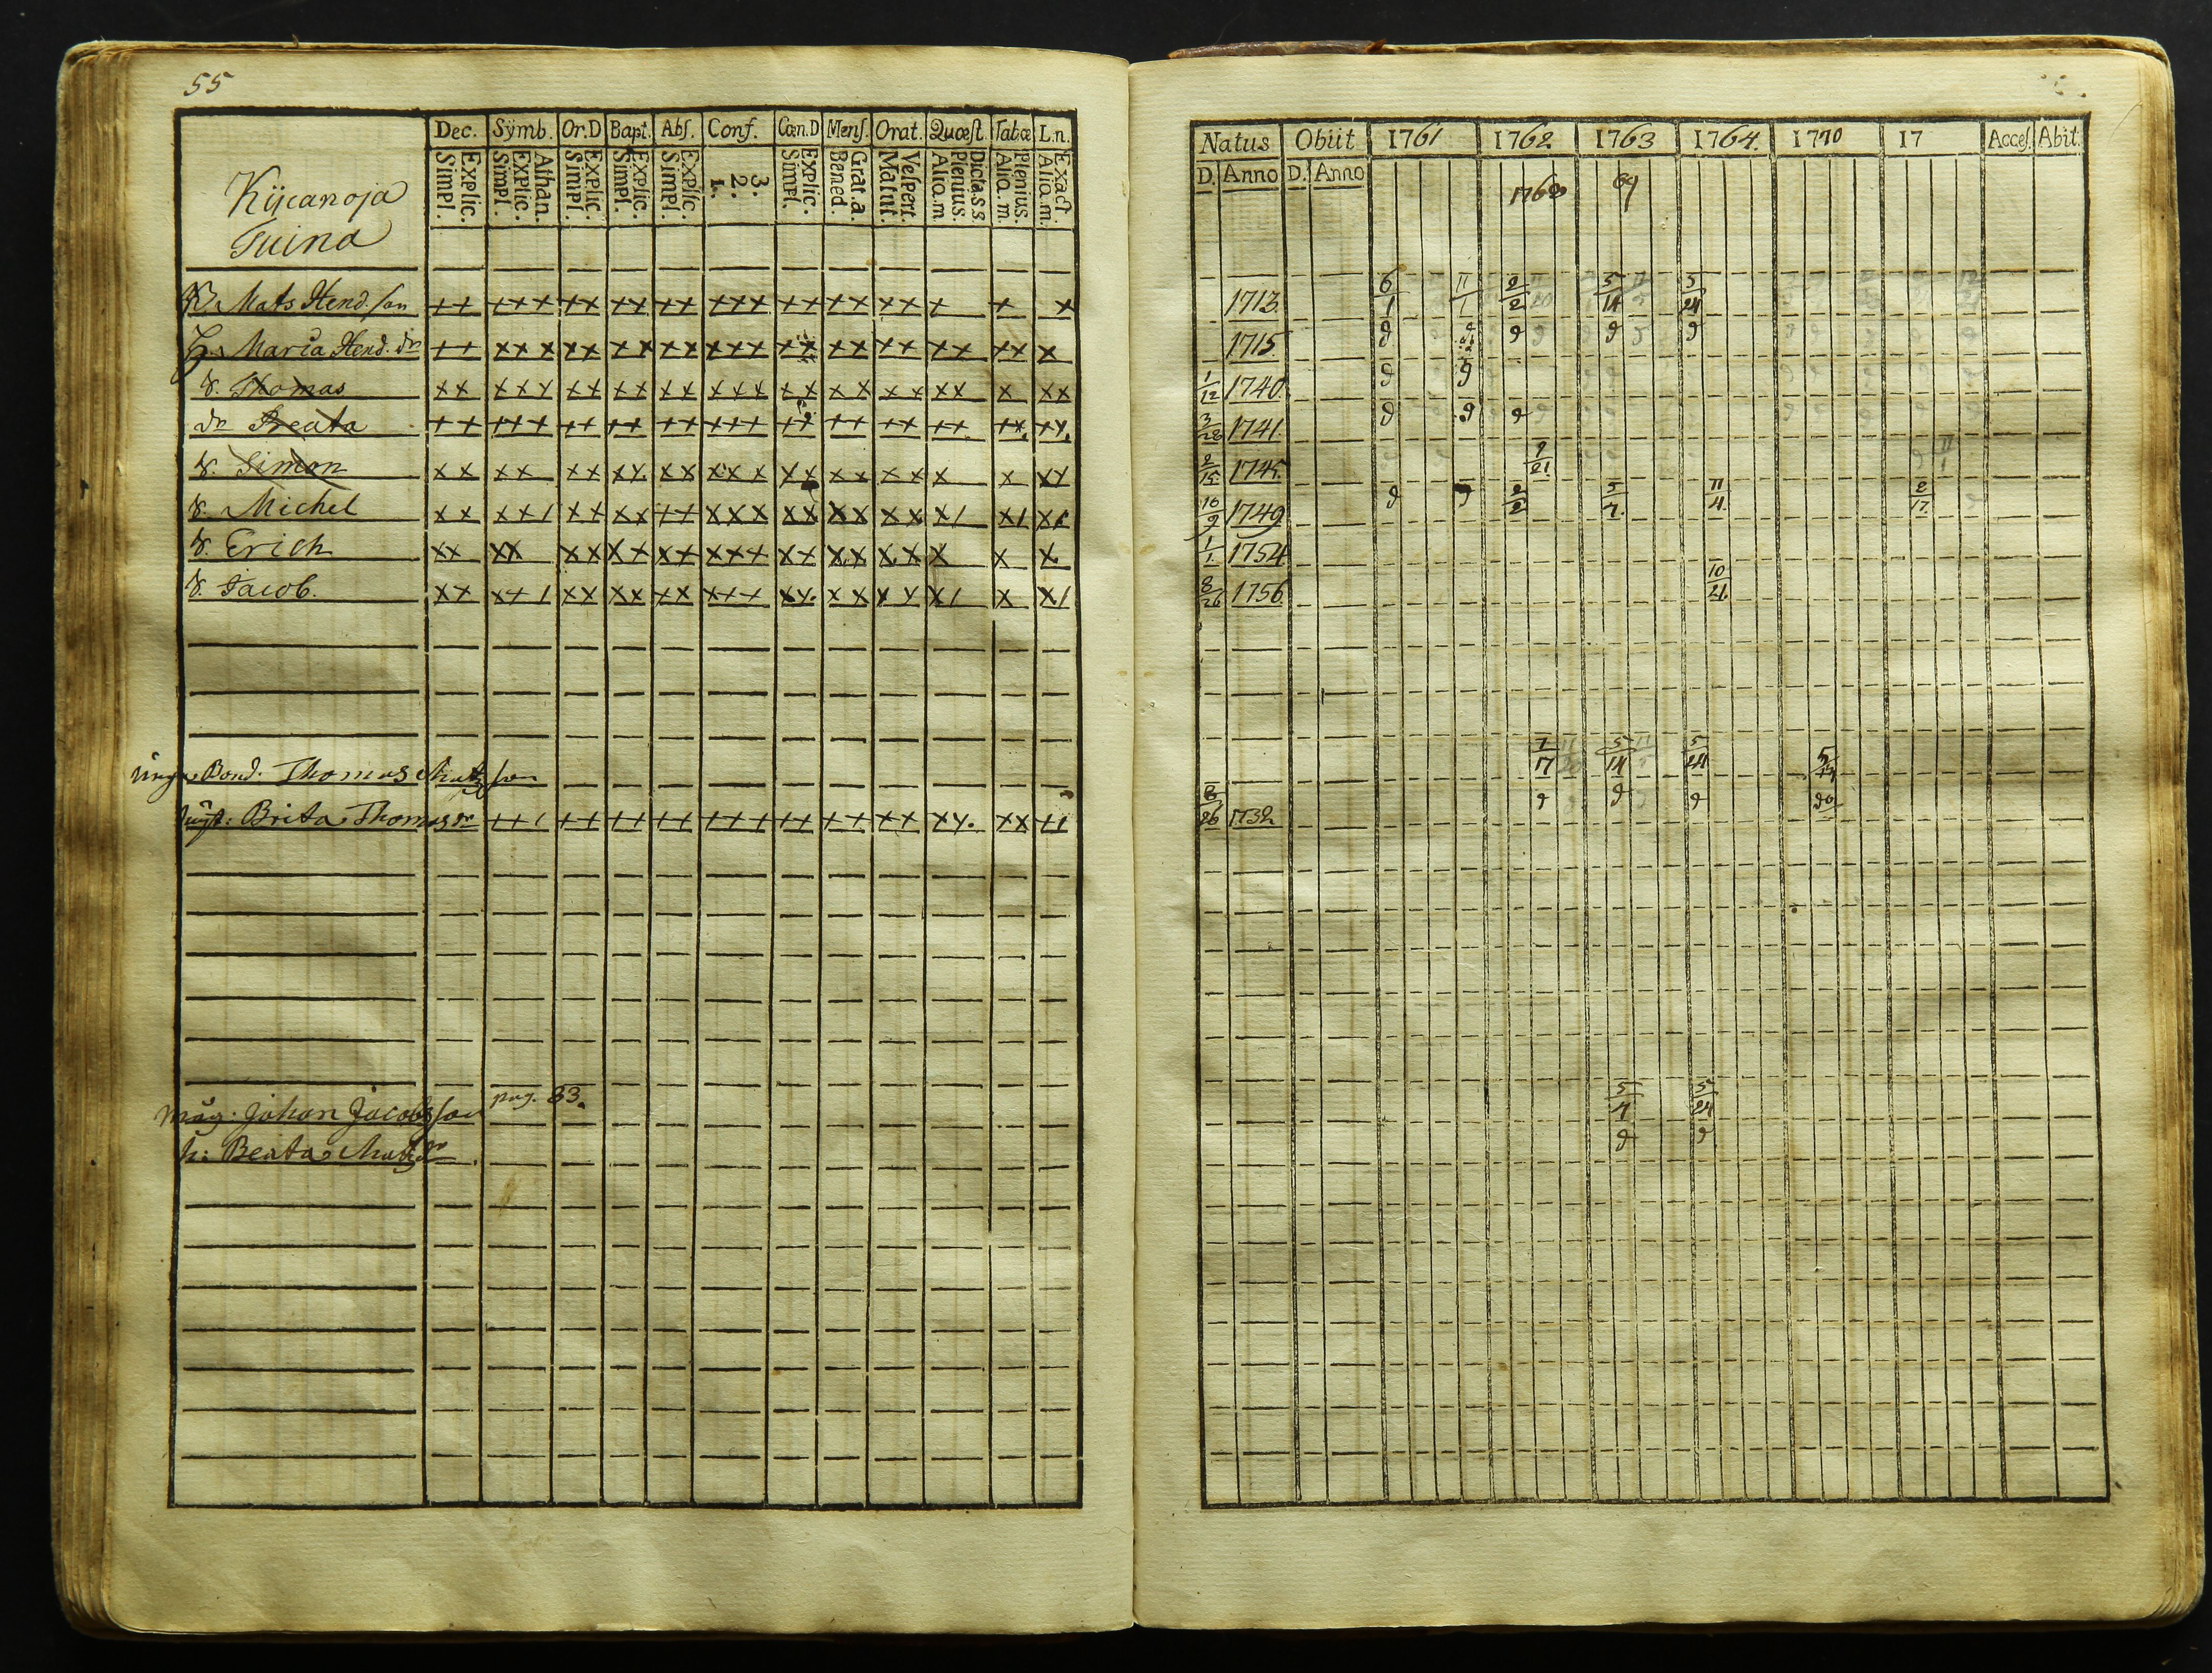 55
Dec. Sÿmb. Or.D Bapt. Abſ. Conf. Cœn.D Menſ. Orat. Quæſt. Tabæ L.n.
Explic. Simpl. Athan. Explic. Simpl. Explic. Simpl. Explic. Simpl. Explic. Simpl. 3. 2. 1. Explic. Simpl. Grat.a. Bened. Veſpert. Matut. Dicta.s.s. Plenius. Aliq.m Plenius. Aliq.m. Exact Aliq.m.
Kijcanoja
Tuina
B. Mats Hend.ſon ++ +++ ++ ++ ++ +++ ++ ++ ++ + + x
H. Maria Hend.dr ++ xxx xx xx xx xxx xx xx xx xx xx x
S. Thomas xx xxx xx xx xx xxx xx xx xx xx x xx
dr Beata ++ +++ ++ ++ ++ +++ ++ ++ ++ ++ ++ xx
S. Simon xx xx xx xx xx xxx xx xx xx x x xx
S. Michel xx xx1 xx xx ++ xxx xx xx xx x1 x1 xx
S. Erich xx xx xx xx xx xxx xx xx xx x x x
S. Jacob. xx xx1 xx xx xx xxx xx xx xx x1 x x1
Bond. Thomas Matsſon
hust: Brita Thomasdr +++ ++ ++ ++ +++ ++ ++ ++ xx xx ++
pag. 83.
måg. Johan Jacobsſon
h: Beata Matsdr
Natus Obiit 1761 1762 1763 1764. 1770 17 Acceſ. Abit.
D. Anno D. Anno
1768 69
1713. 6/1 11/1 2/2 5/14 5/24
1715.
1/12 1740.
3/28 1741.
2/15 1745. 9/21
10/9 1749 2/2 5/7. 11/4. 2/17
1/1 1754
8/26 1756. 10/21.
7/17 5/14 5/24 5/24
8/26 1732
5/7 5/24